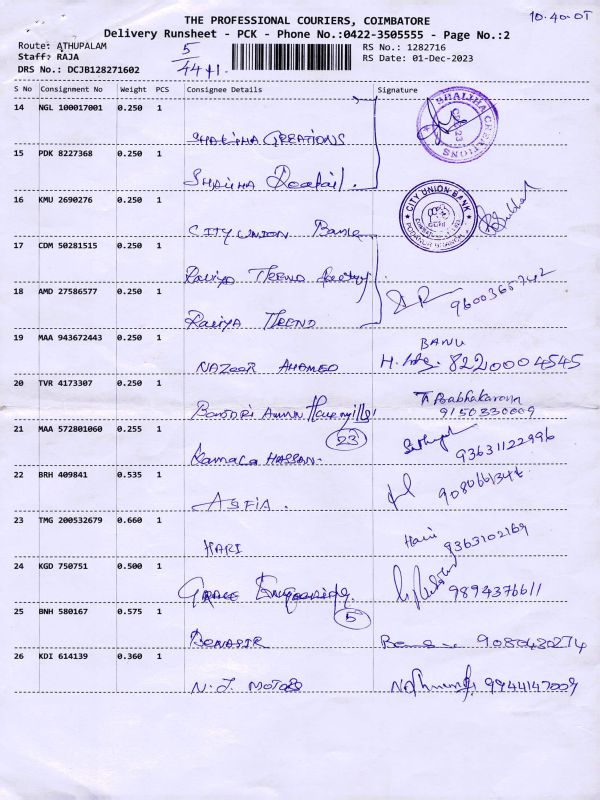 THE PROFESSIONAL COURIERS, COIMBATORE
10.40-0T
Delivery Runsheet - PCK - Phone No.:0422-3505555 - Page No.:2
Route: ATHUPALAM
RS No.: 1282716
Staff: RAJA
RS Date: 01-Dec-2023
DRS No.: DCJB128271602
5/44+1
S No Consignment No Weight PCS Consignee Details Signature
14 NGL 100017001 0.250 1
SHALIHA CREATIONS
SHALIHA CREATIONS
15 PDK 8227368 0.250 1
SHALIHA
16 KMU 2690276 0.250 1
CITY UNION BANK
CITY UNION Bank
17 CDM 50281515 0.250 1
TREND
18 AMD 27586577 0.250 1
TREND
19 MAA 943672443 0.250 1
NAZEER AHAMED
BANU
8220004545
20 TVR 4173307 0.250 1
Prabhakaran
9150330009
21 MAA 572801060 0.255 1
23
Kamala HASSAN
93631122996
22 BRH 409841 0.535 1
ASFIA.
23 TMG 200532679 0.660 1
HARI
Hari
9363102169
24 KGD 750751 0.500 1
GRACE
9894376611
5
25 BNH 580167 0.575 1
BENASIR
9080480274
26 KDI 614139 0.360 1
N.J. MOTORS
9944147009